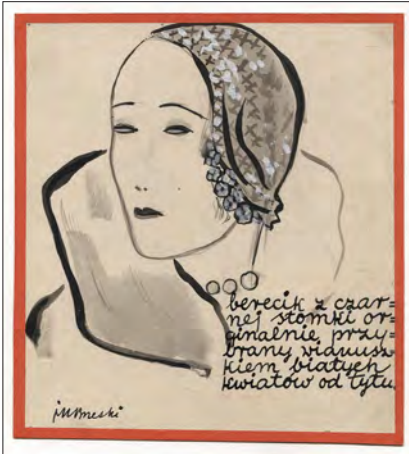 berecik z czar=
nej słomki or=
ginalnie przy=
brany wianusz=
kiem białych
kwiatów od tyłu.
JMBrzeski